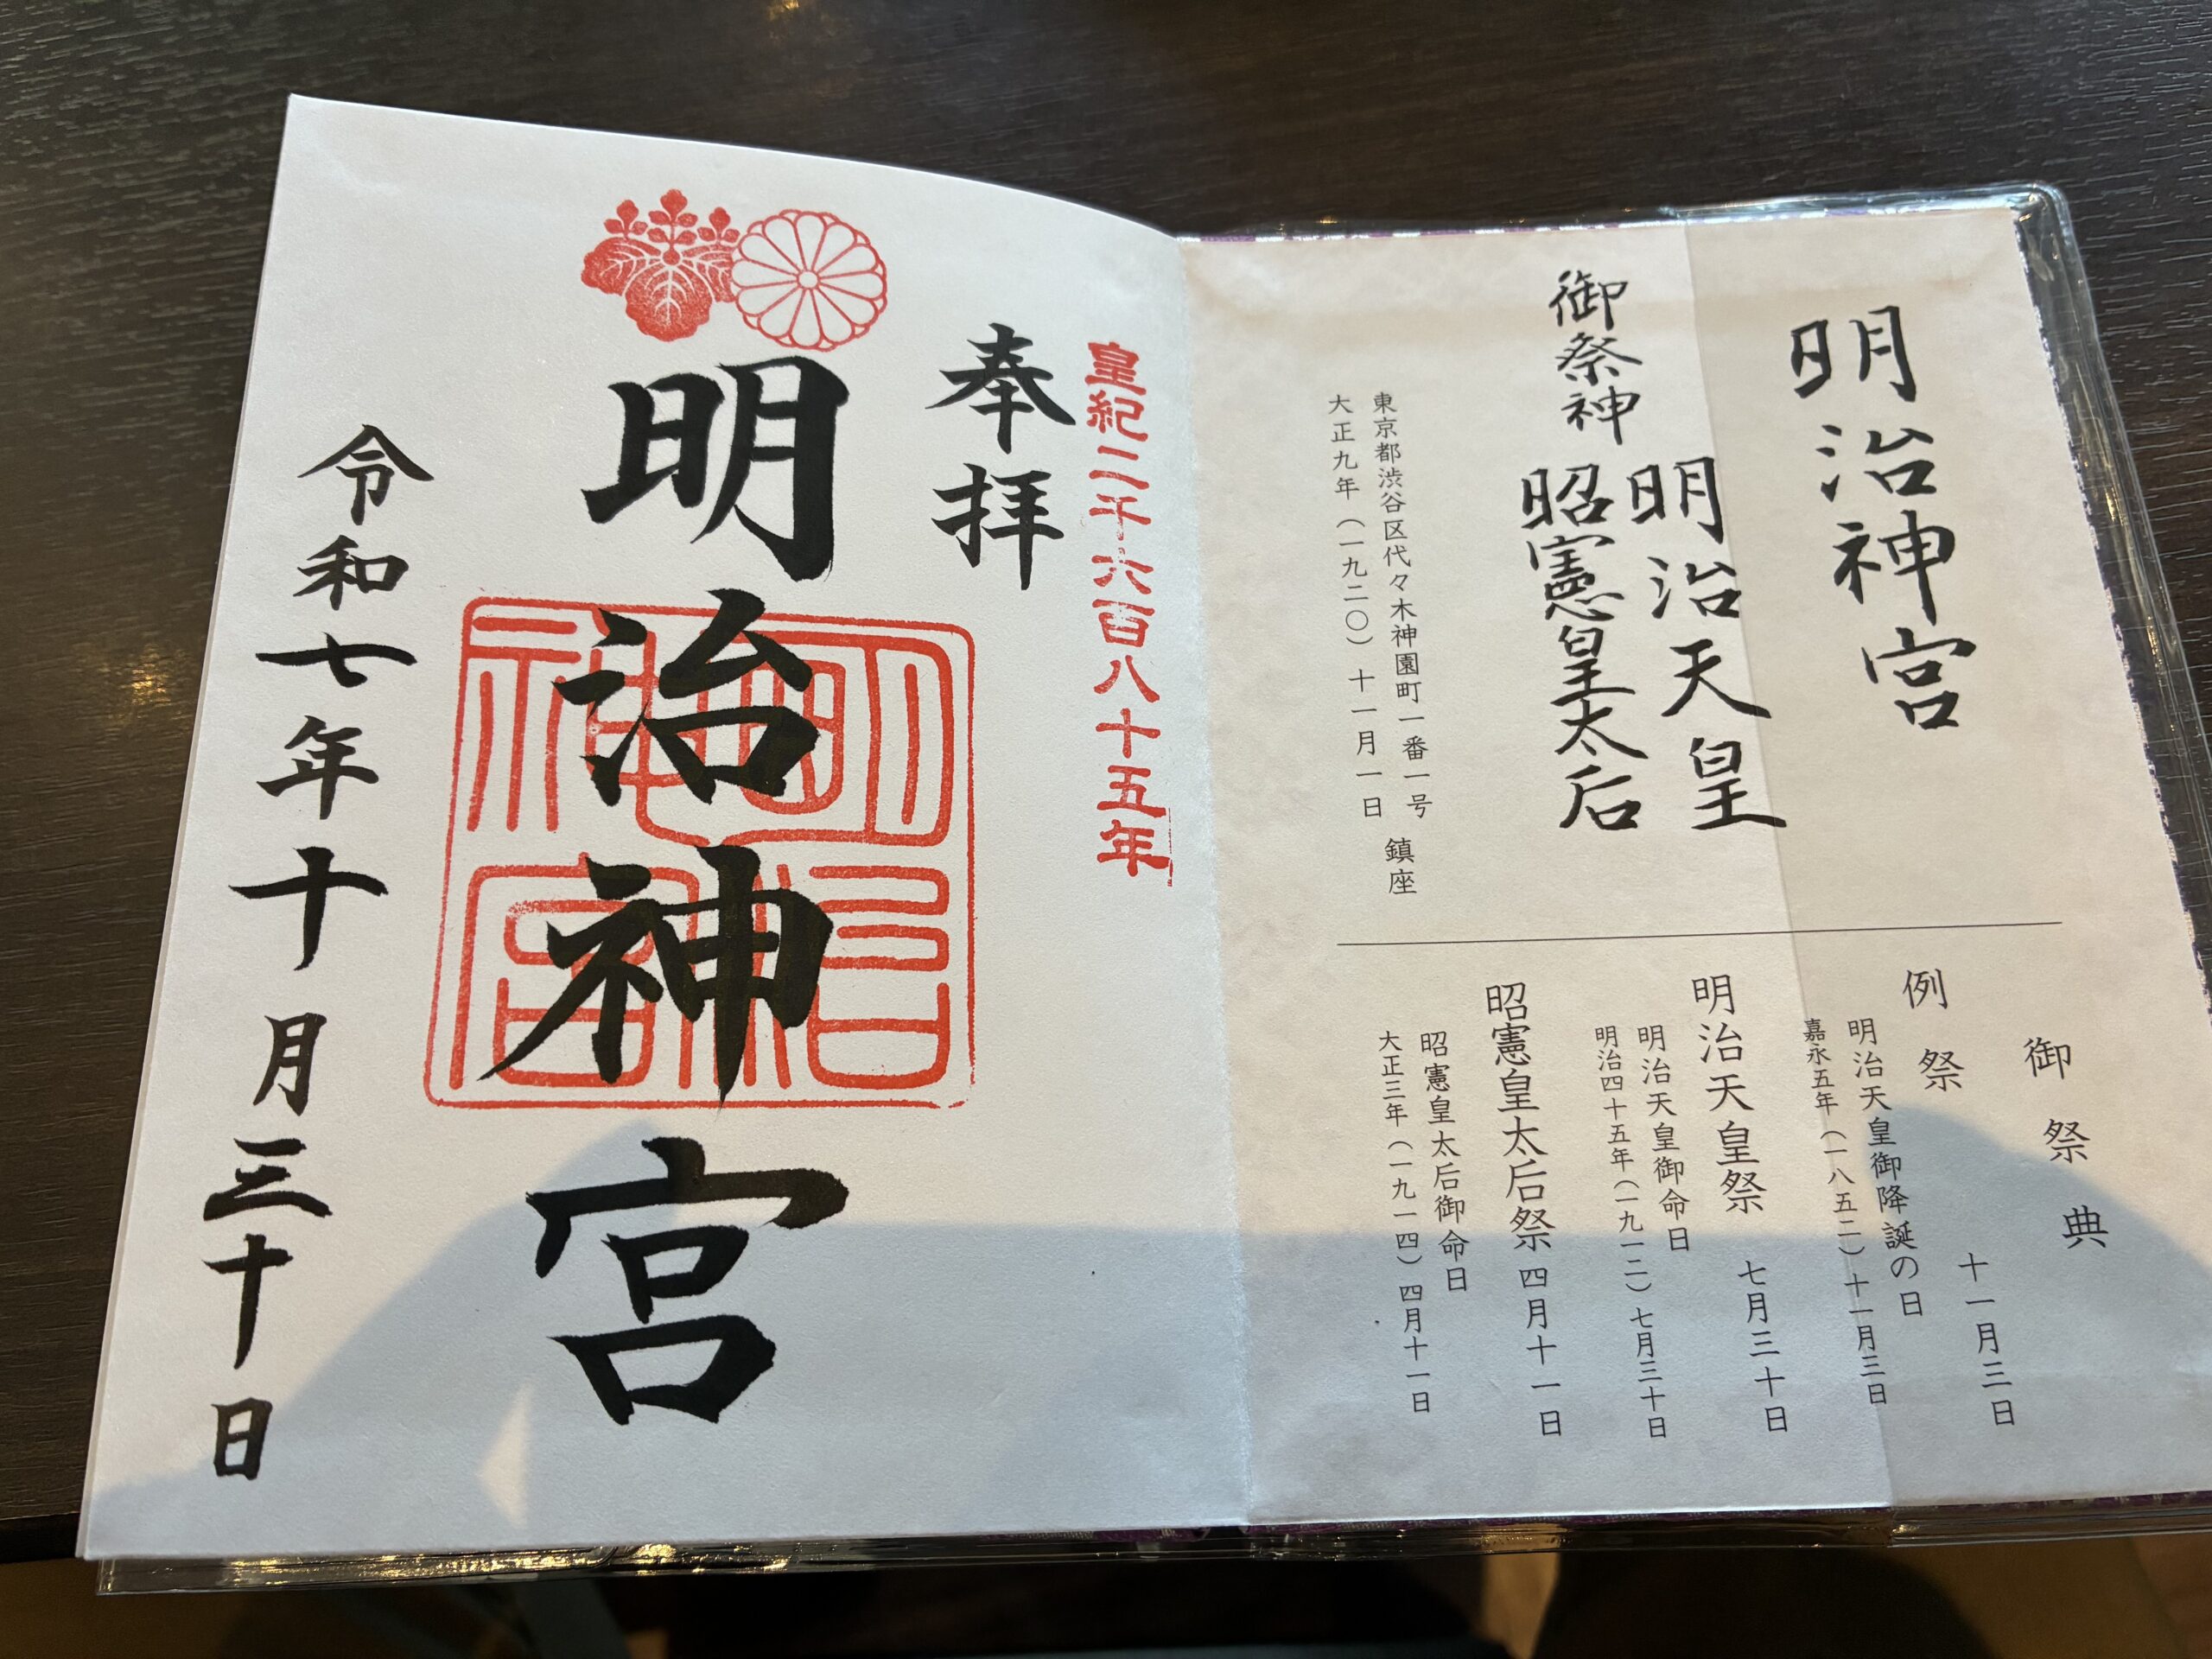 明治神宮
御祭神
明治天皇
昭憲皇太后
東京都渋谷区代々木神園町一番一号
大正九年（一九二〇）十一月一日　鎮座
御祭典
例祭　十一月三日
明治天皇御降誕の日
嘉永五年（一八五二）十一月三日
明治天皇祭　七月三十日
明治天皇御命日
明治四十五年（一九一二）七月三十日
昭憲皇太后祭　四月十一日
昭憲皇太后御命日
大正三年（一九一四）四月十一日
皇紀二千六百八十五年
奉拝
明治神宮
明治神宮
令和七年十月三十日